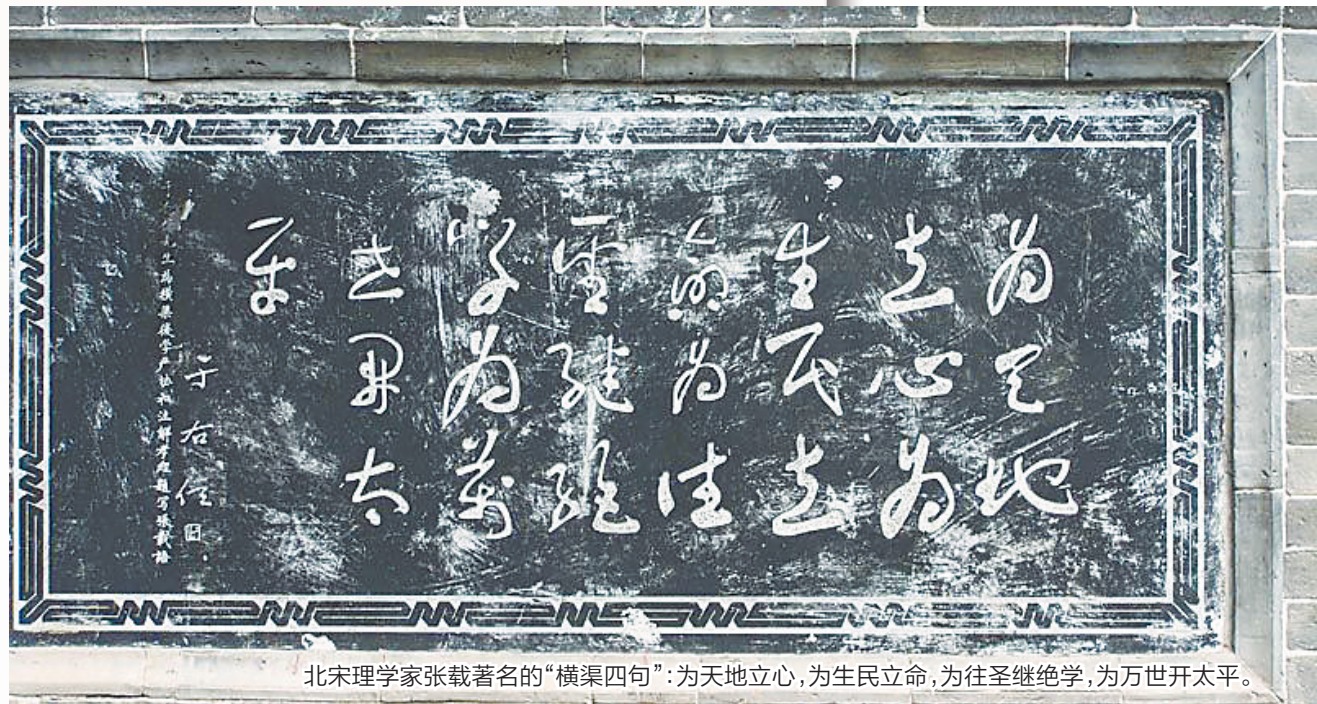 為天地
立心為
生民立
命為往
聖繼絕
學為萬
世開太
平
于右任
北宋理学家张载著名的“横渠四句”:为天地立心,为生民立命,为往圣继绝学,为万世开太平。